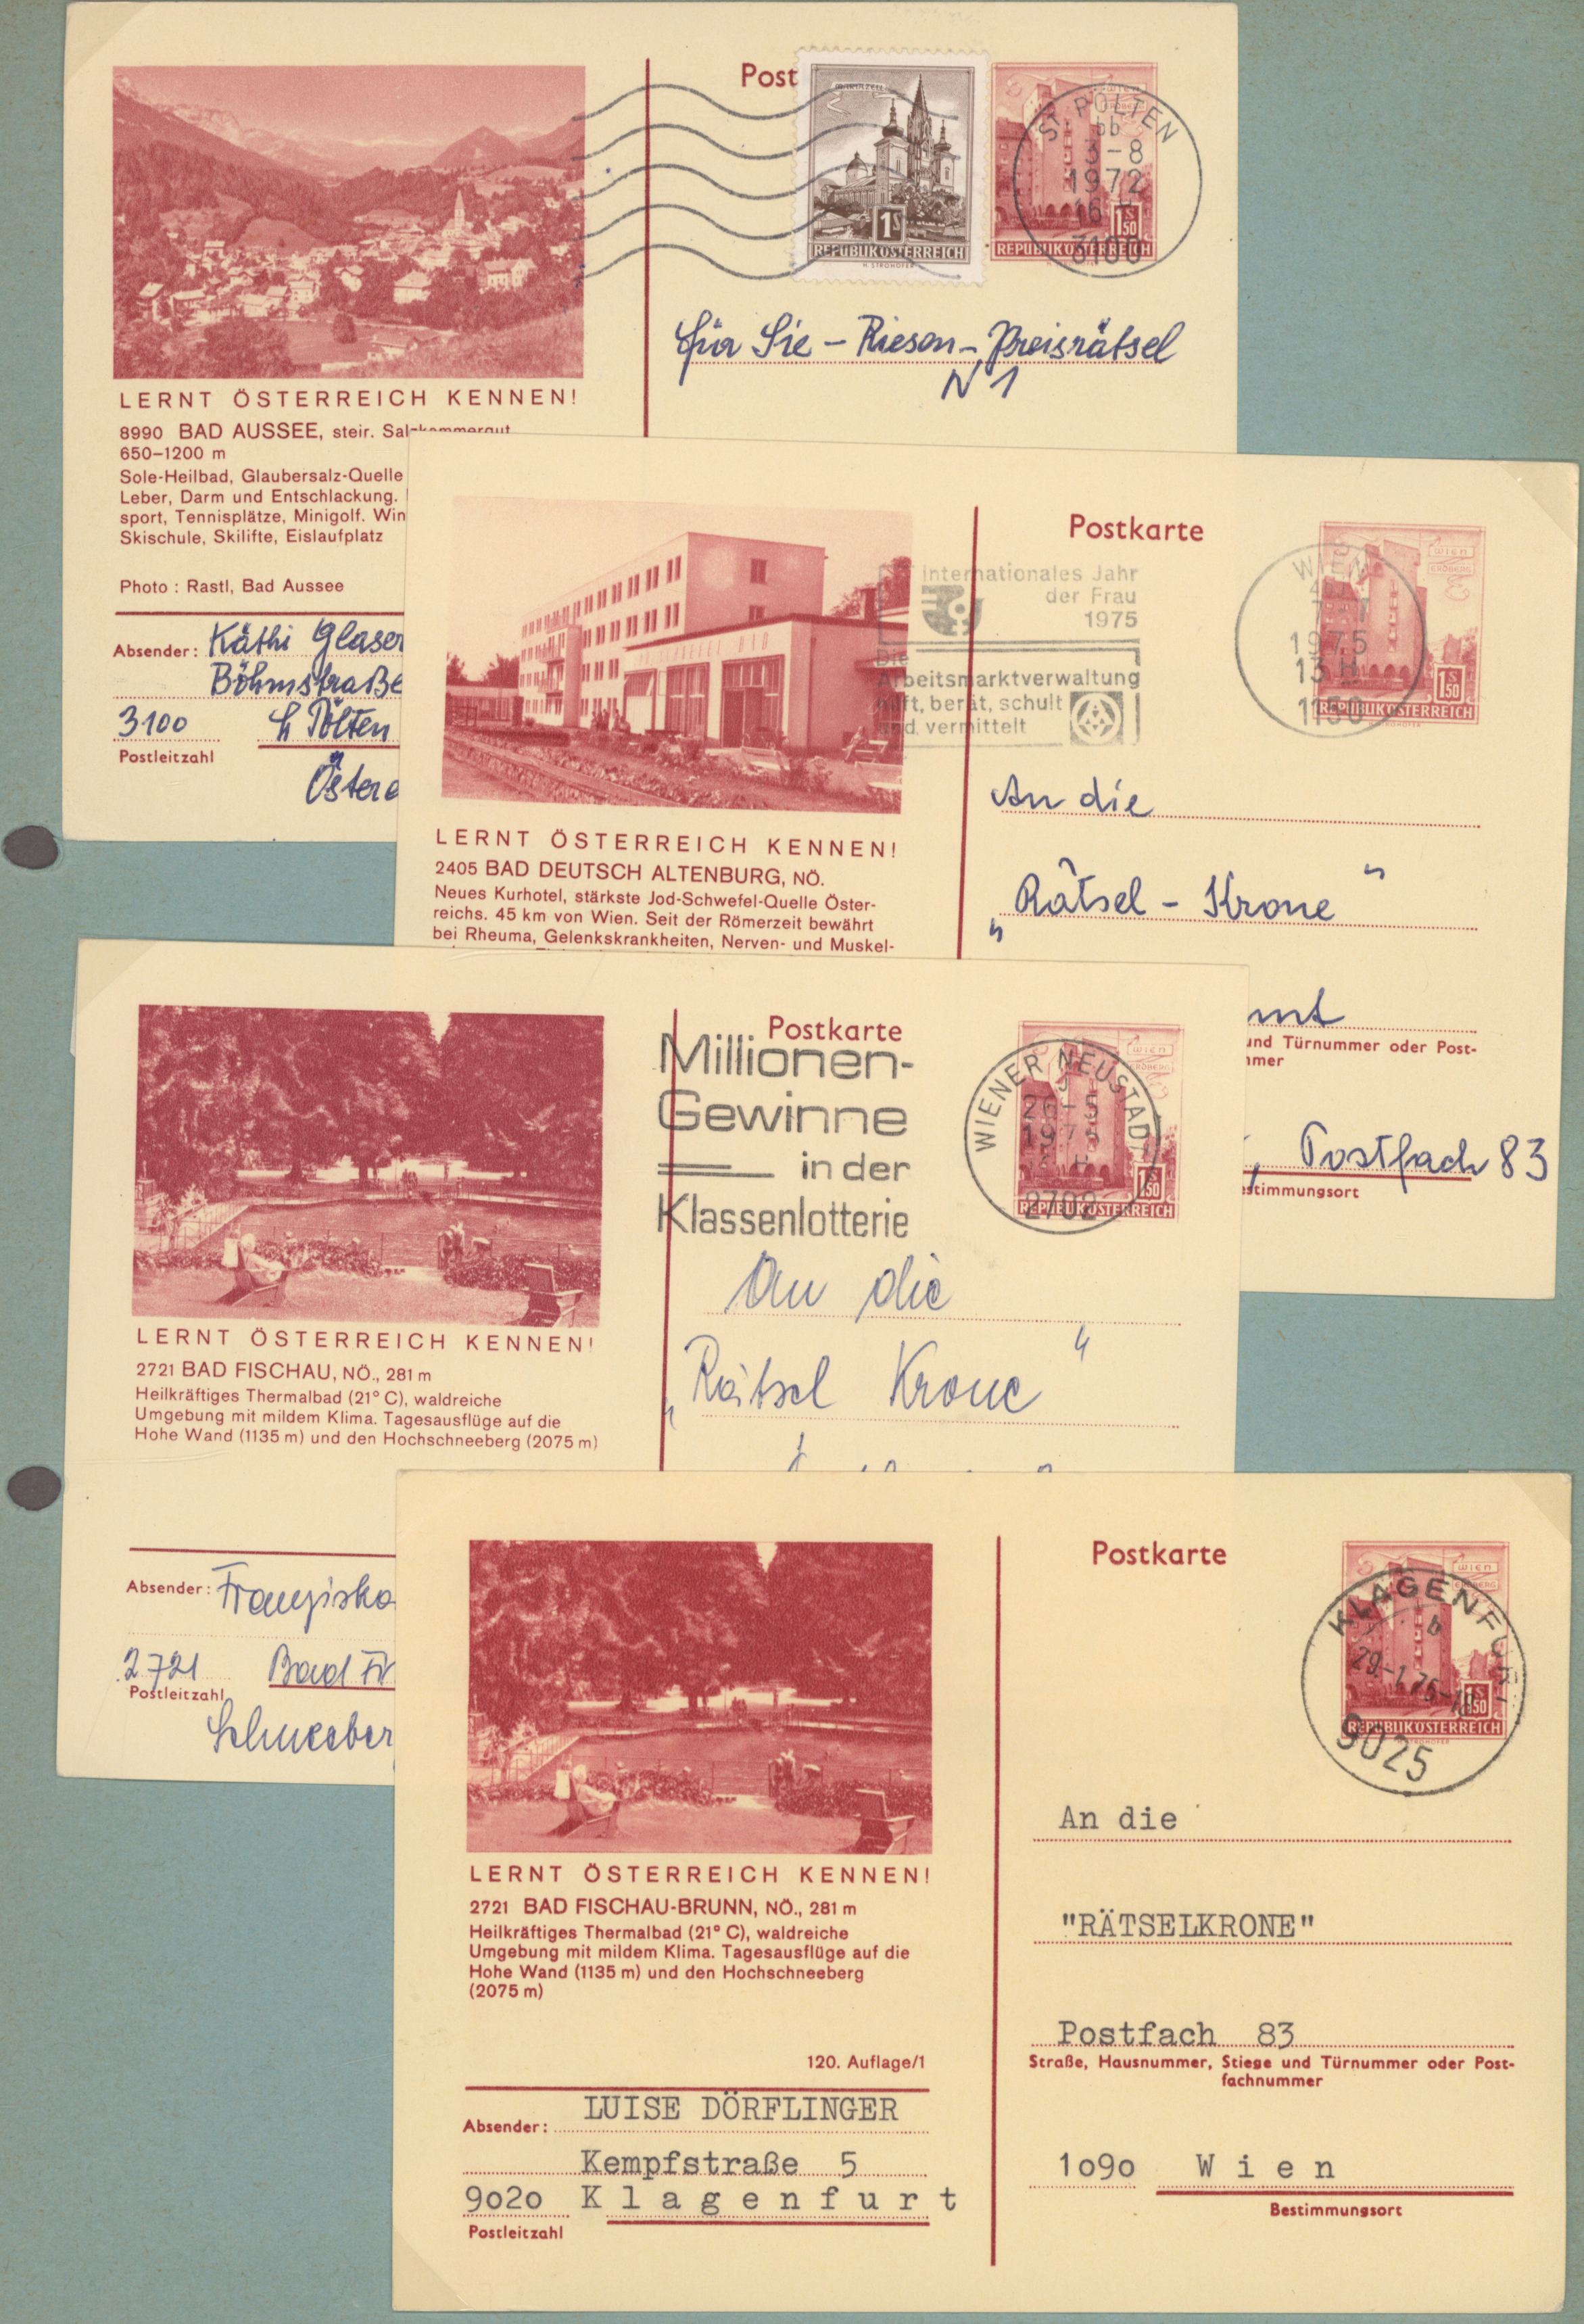 Post
MARIAZELL
1S
REPUBLIK ÖSTERREICH
H. STROHOFER
WIEN
ERDBERG
1S50
REPUBLIK ÖSTERREICH
ST. PÖLTEN
bb
3-8
1972
16
3100
für Sie - Riesen - Preisrätsel
N 1
LERNT ÖSTERREICH KENNEN!
8990 BAD AUSSEE, steir. Salzkammergut
650–1200 m
Sole-Heilbad, Glaubersalz-Quelle
Leber, Darm und Entschlackung.
sport, Tennisplätze, Minigolf. Win
Skischule, Skilifte, Eislaufplatz
Photo : Rastl, Bad Aussee
Absender: Käthi Glaser
Böhmstraße
3100 St Pölten
Postleitzahl
Postkarte
Internationales Jahr
der Frau
1975
Die
Arbeitsmarktverwaltung
hilft, berät, schult
und vermittelt
WIEN
1975
13 H
1150
WIEN
ERDBERG
1S50
REPUBLIK ÖSTERREICH
An die
„Rätsel - Krone"
LERNT ÖSTERREICH KENNEN!
2405 BAD DEUTSCH ALTENBURG, NÖ.
Neues Kurhotel, stärkste Jod-Schwefel-Quelle Öster-
reichs. 45 km von Wien. Seit der Römerzeit bewährt
bei Rheuma, Gelenkskrankheiten, Nerven- und Muskel-
und Türnummer oder Post-
mmer
, Postfach 83
estimmungsort
Postkarte
Millionen-
Gewinne
in der
Klassenlotterie
WIENER NEUSTADT
2702
WIEN
ERDBERG
1S50
REPUBLIK ÖSTERREICH
An die
„Rätsel Krone"
LERNT ÖSTERREICH KENNEN!
2721 BAD FISCHAU, NÖ., 281 m
Heilkräftiges Thermalbad (21° C), waldreiche
Umgebung mit mildem Klima. Tagesausflüge auf die
Hohe Wand (1135 m) und den Hochschneeberg (2075 m)
Absender: Franziska
2721 Bad Fi
Postleitzahl
Schneeber
Postkarte
WIEN
ERDBERG
1S50
REPUBLIK ÖSTERREICH
KLAGENFURT
b
29.-1.75-18
9025
An die
"RÄTSELKRONE"
Postfach 83
Straße, Hausnummer, Stiege und Türnummer oder Post-
fachnummer
1o9o Wien
Bestimmungsort
LERNT ÖSTERREICH KENNEN!
2721 BAD FISCHAU-BRUNN, NÖ., 281 m
Heilkräftiges Thermalbad (21° C), waldreiche
Umgebung mit mildem Klima. Tagesausflüge auf die
Hohe Wand (1135 m) und den Hochschneeberg
(2075 m)
120. Auflage/1
Absender: LUISE DÖRFLINGER
Kempfstraße 5
9o2o Klagenfurt
Postleitzahl